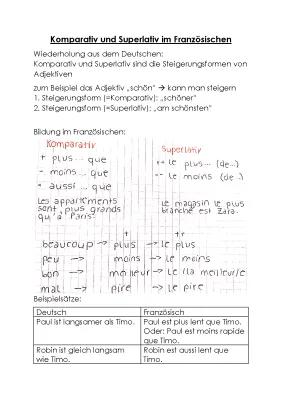 Komparativ und Superlativ im Französischen
Wiederholung aus dem Deutschen:
Komparativ und Superlativ sind die Steigerungsformen von
Adjektiven
zum Beispiel das Adjektiv „schön“ → kann man steigern
1. Steigerungsform (=Komparativ): „schöner“
2. Steigerungsform (=Superlativ): „am schönsten“
Bildung im Französischen:
Komparativ
+ plus... que
- moins... que
= aussi ... que
Les appartements
sont plus grands
qu'à Paris.
Superlativ
++ le plus... (de...)
-- le moins (de...)
Le magasin le plus
branché est Zara.
+ ++
beaucoup → plus → le plus
peu → moins → le moins
bon → meilleur → le (la meilleur/e
mal → pire → le pire
Beispielsätze:
Deutsch Französisch
Paul ist langsamer als Timo. Paul est plus lent que Timo.
Oder: Paul est moins rapide
que Timo.
Robin ist gleich langsam Robin est aussi lent que
wie Timo. Timo.